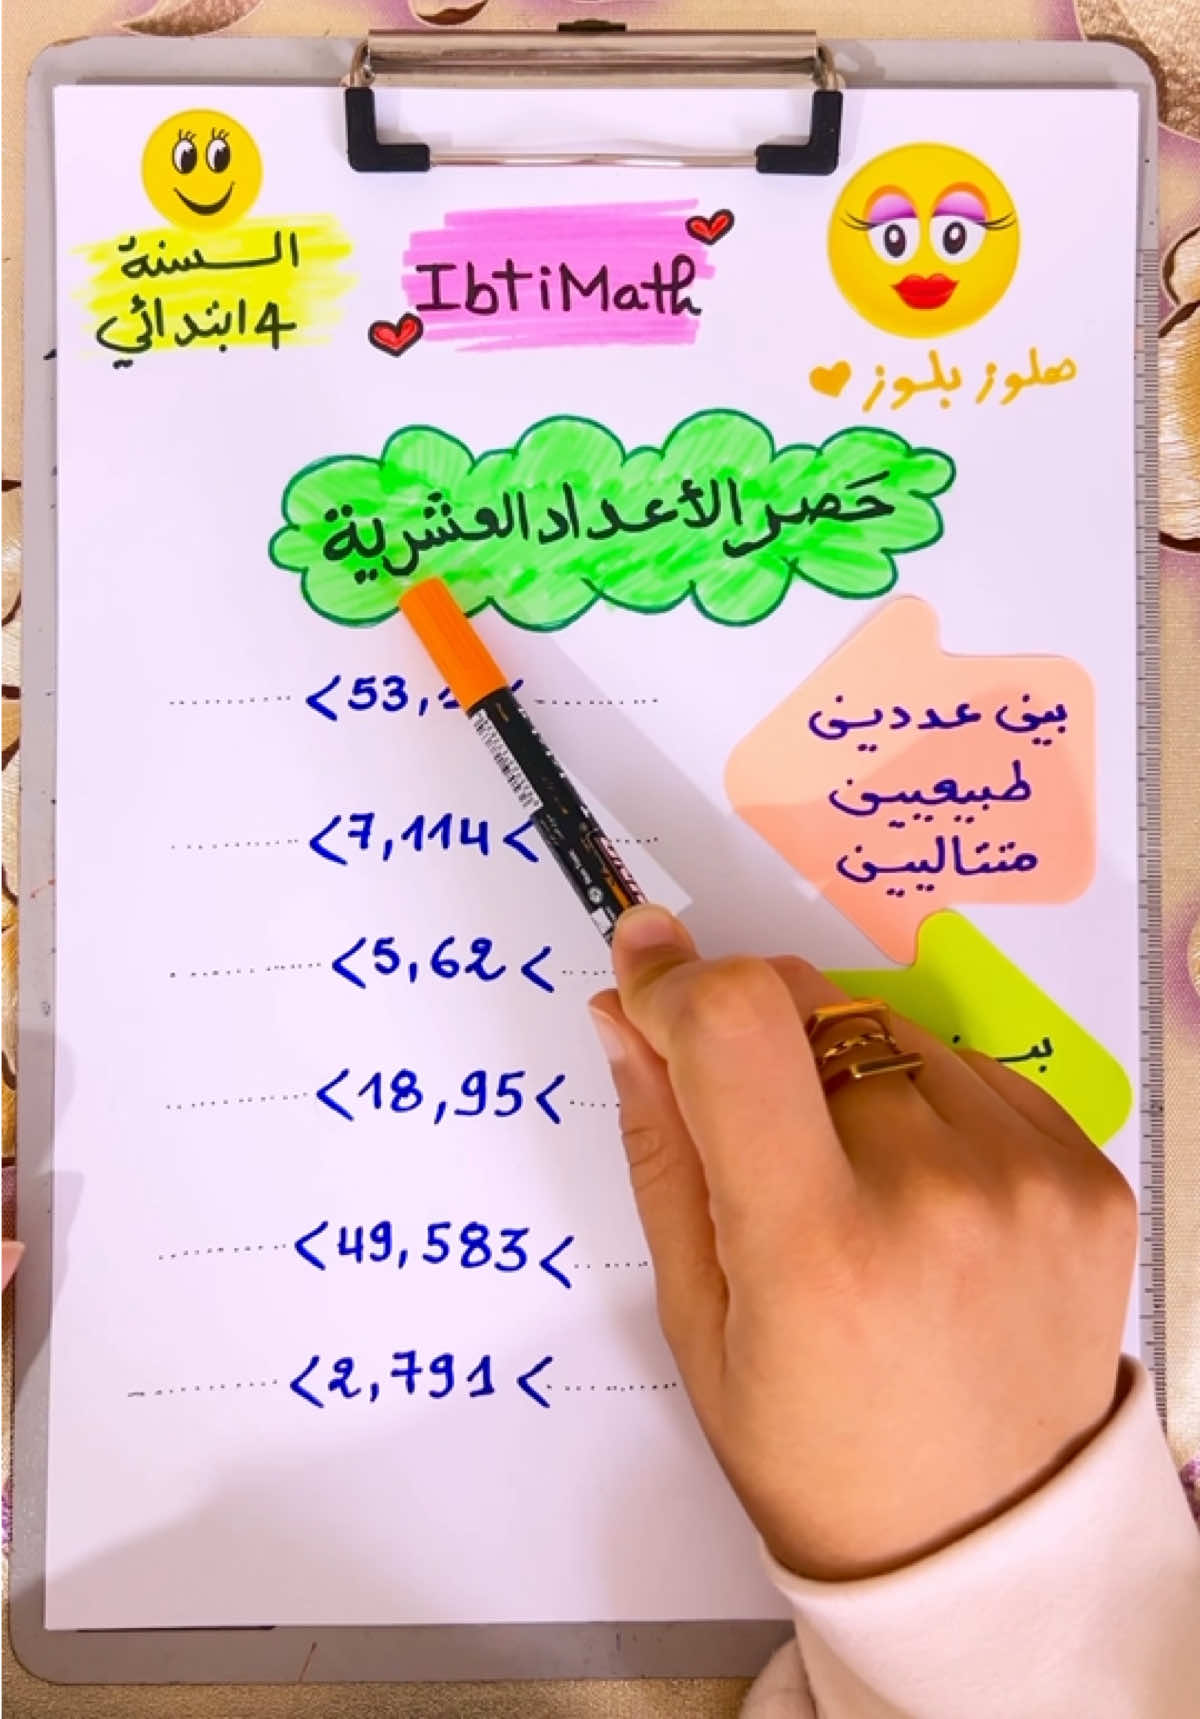 السنة
4 ابتدائي
IbtiMath
هلوز بلوز
حَصر الأعداد العشرية
بين عددين
طبيعيين
متتاليين
........... <53, ...........
........... <7,114< ...........
........... <5,62< ...........
........... <18,95< ...........
........... <49,583< ...........
........... <2,791< ...........